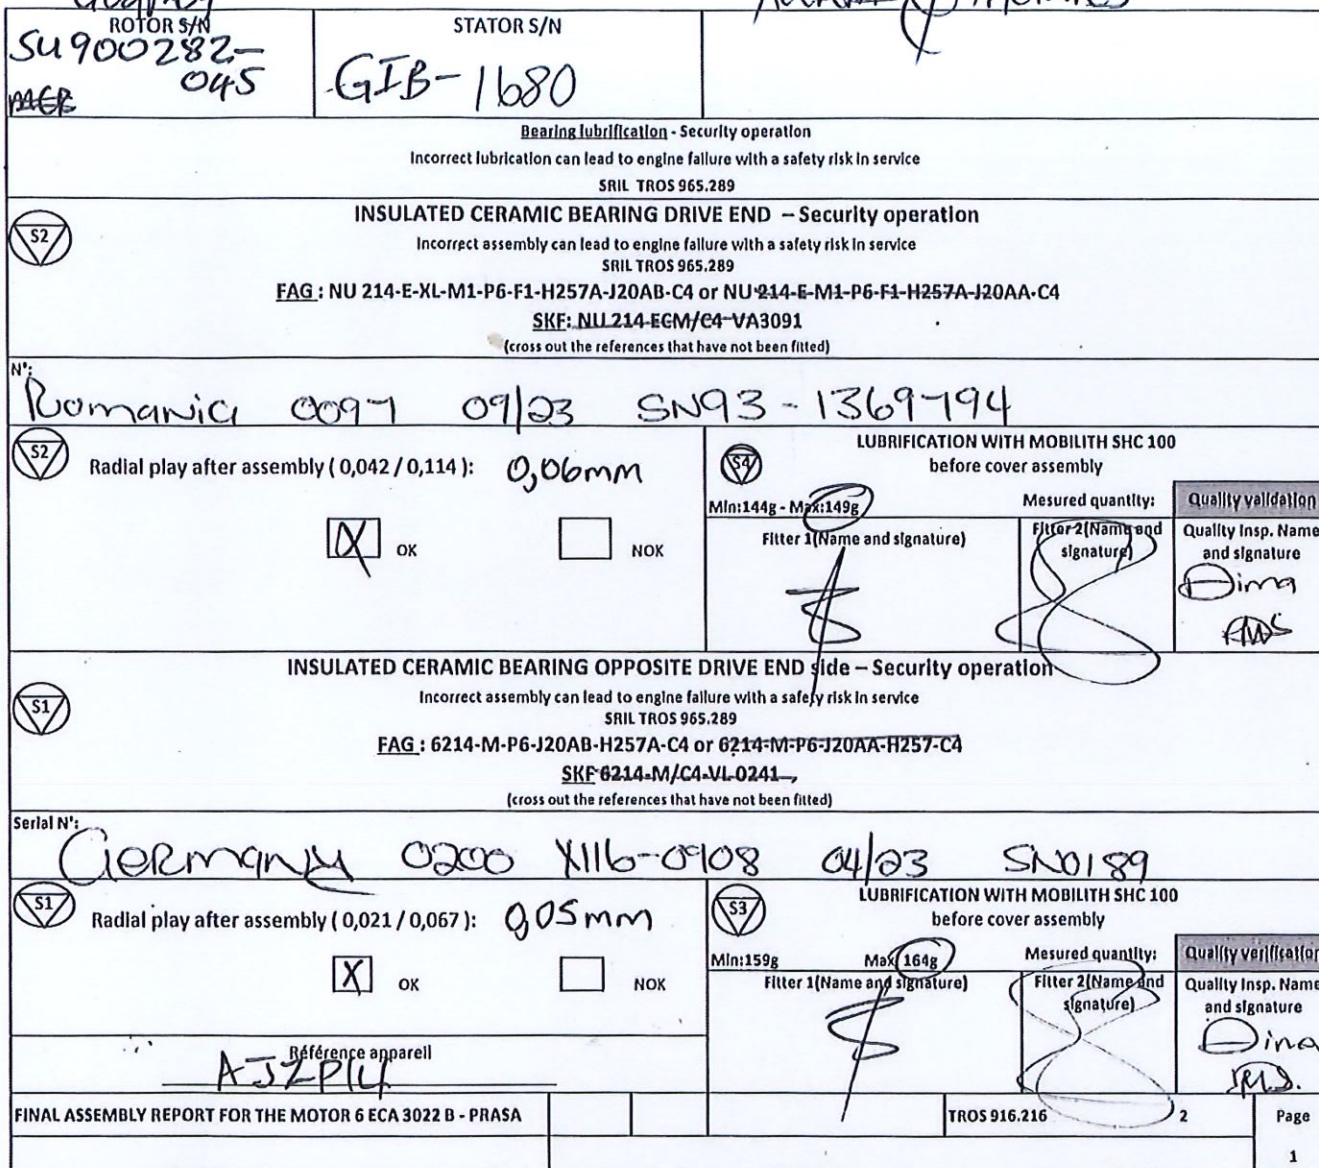 ROTOR S/N
SU900282-
045
STATOR S/N
GIB-1680
Bearing lubrification - Security operation
Incorrect lubrication can lead to engine failure with a safety risk in service
SRIL TROS 965.289
S2
INSULATED CERAMIC BEARING DRIVE END – Security operation
Incorrect assembly can lead to engine failure with a safety risk in service
SRIL TROS 965.289
FAG : NU 214-E-XL-M1-P6-F1-H257A-J20AB-C4 or NU 214-E-M1-P6-F1-H257A-J20AA-C4
SKF: NU 214-ECM/C4-VA3091
(cross out the references that have not been fitted)
N°:
Romania 0097 09/23 SN93-1369794
S2
Radial play after assembly ( 0,042 / 0,114 ): 0,06mm
X OK
NOK
S4
LUBRIFICATION WITH MOBILITH SHC 100
before cover assembly
Min:144g - Max:149g
Mesured quantity:
Quality validation
Fitter 1(Name and signature)
Fitter 2(Name and
signature)
Quality Insp. Name
and signature
Dima
INSULATED CERAMIC BEARING OPPOSITE DRIVE END side – Security operation
S1
Incorrect assembly can lead to engine failure with a safety risk in service
SRIL TROS 965.289
FAG : 6214-M-P6-J20AB-H257A-C4 or 6214-M-P6-J20AA-H257-C4
SKF 6214-M/C4-VL-0241
(cross out the references that have not been fitted)
Serial N°:
Germany 0200 X116-0908 04/23 SN0189
S1
Radial play after assembly ( 0,021 / 0,067 ): 0,05mm
X OK
NOK
S3
LUBRIFICATION WITH MOBILITH SHC 100
before cover assembly
Min:159g Max 164g
Mesured quantity:
Quality verification
Fitter 1(Name and signature)
Fitter 2(Name and
signature)
Quality Insp. Name
and signature
Dina
Référence appareil
AJZP14
FINAL ASSEMBLY REPORT FOR THE MOTOR 6 ECA 3022 B - PRASA
TROS 916.216
2
Page
1